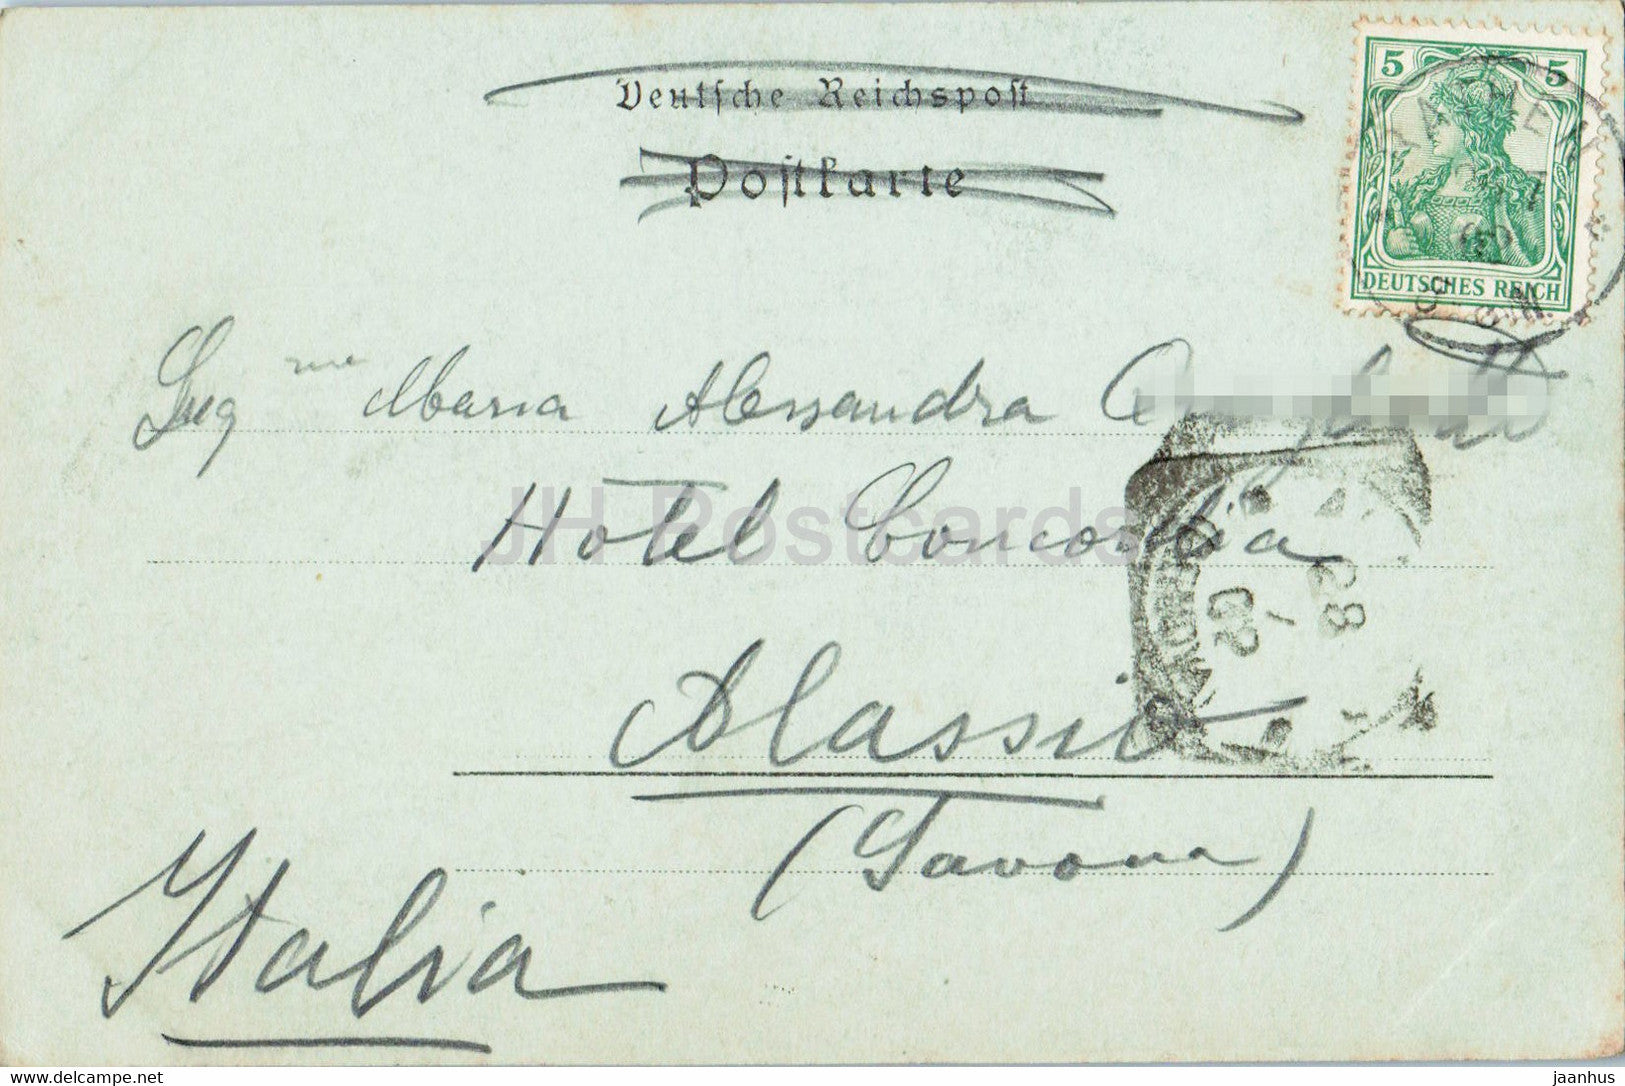 Deutsche Reichspost
Postkarte
5 5
DEUTSCHES REICH
Sigma Maria Alessandra
Hotel Concordia
JH Postcards
28
7
02
Alassio
(Savona)
Italia
delcampe.net
jaanhus